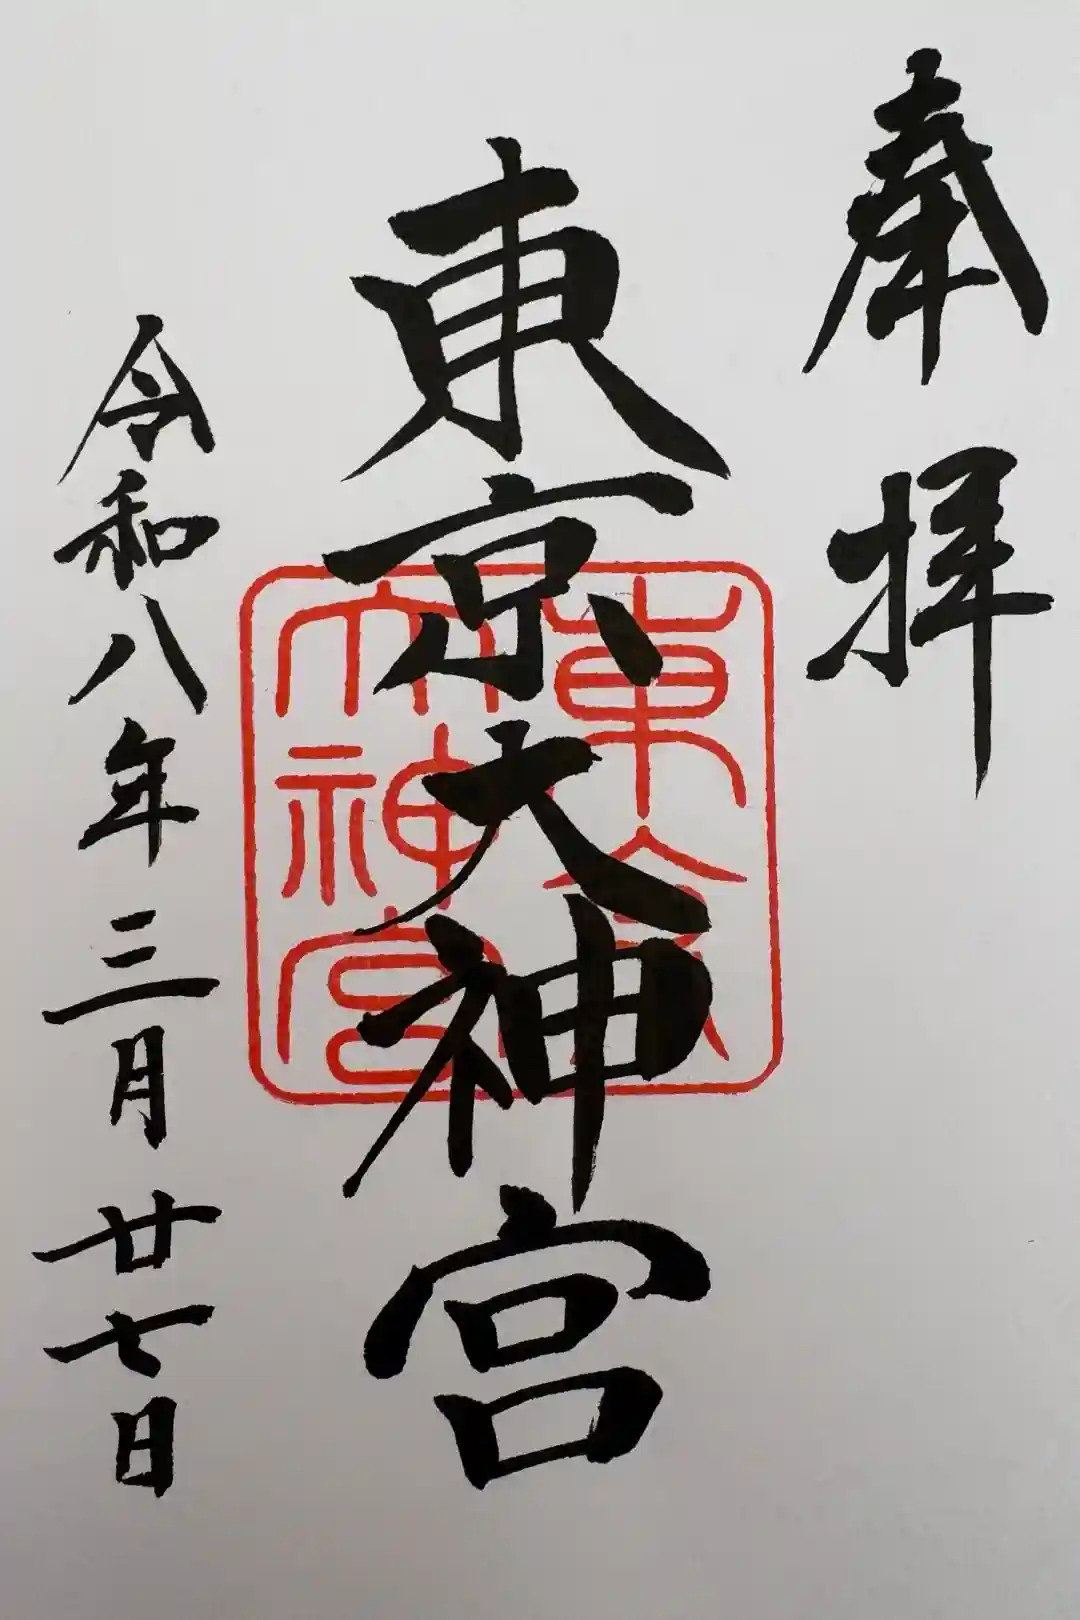 奉拝
東京大神宮
東京
大神宮
令和八年三月廿七日